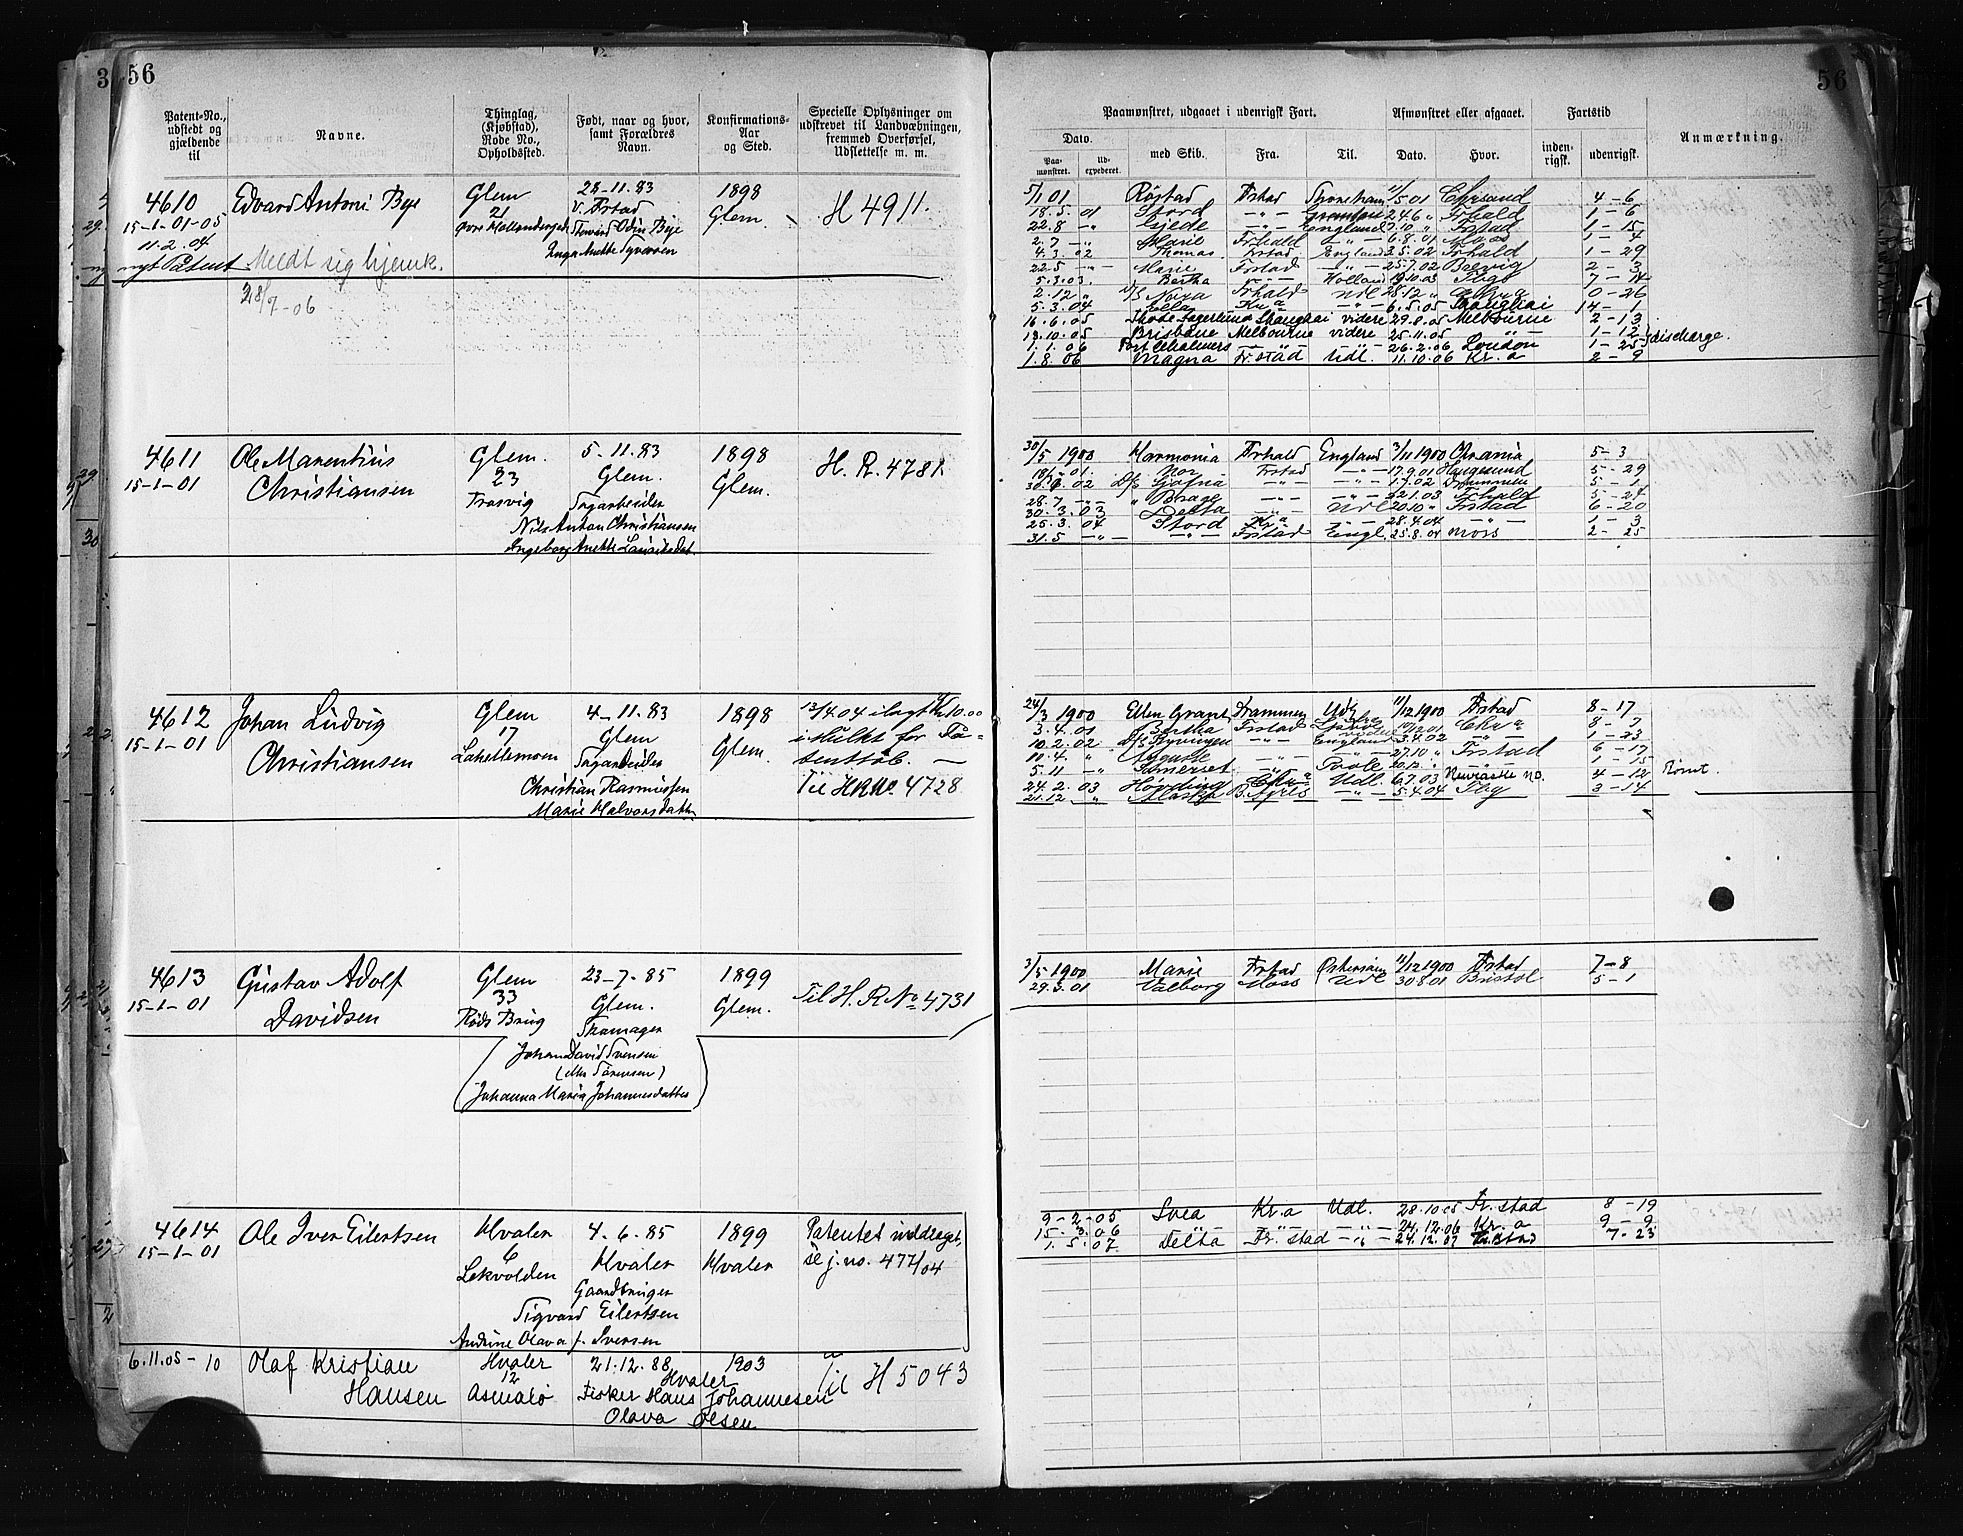 3
56
56
Patent-No.,
udstedt og
gjældende
til
Navne.
Thinglag,
(Kjøbstad),
Rode No.,
Opholdssted.
Født, naar og hvor,
samt Forældres
Navn.
Konfirmations-
Aar
og Sted.
Specielle Oplysninger om
udskrevet til Landvæbningen,
fremmed Overførsel,
Udslettelse m. m.
Paamønstret, udgaaet i udenrigsk Fart.
Dato.
Paa-
mønstret.
Ud-
expederet.
med Skib.
Fra.
Til.
Afmønstret eller afgaaet.
Dato.
Hvor.
Fartstid
inden-
rigsk.
udenrigsk.
Anmærkning.
4610
15-1-01-05
11.2.04
nyt Patent
Edvard Antoni Bye
Meldt sig hjemk.
28/7-06
Glem
21
28-11.83
v. Frstad
Steward Odin Bye
Inga Anette Syversen
1898
Glem.
H 4911.
5/1 01 Röstad Frstad 11/5 01 Chrsand 4-6
18.5. 01 Stord -"- 24.6 " Frhald 1-6
22.8 -"- Gjede -"- England 7.10 " Frstad 1-15
2.7 -"- Marie Frhald -"- 6.8.01 Moss 1-4
4.3.02 Thomas Frstad England 3.5.02 Frhald 1-29
22.5 -"- Marie Frstad -"- 25.7.02 2-3
5.3.03. Bertha -"- Holland 19.10.03 Tbg 7-14
2.12 " D/S Nora Frhald Udl 28.12 " 0-26
5.3.04 Ella Kr.a -"- 6.5.05 Shanghai 14-1
16.6.05 Shanghai videre 29.8.05 Melbourne 2-13
13.10.05 Brisbane Melbourne videre 25.11.05 -"- 1-12
1.1.06 Port Chalmers -"- -"- 26.2.06 London 1-25 discharge.
1.8.06 Magna Fr.stad Udl. 11.10.06 Kr.a 2-9
4611
15-1-01
Ole Marentius
Christiansen
Glem.
23
Trosvig
5.11.83
Glem.
Sagarbeider
Nils Anton Christiansen
Ingeborg Anette Lauritsdat
1898
Glem.
H. R. 4781.
30/5 1900 Harmonia Frhald England 3/11 1900 Chrania 5-3
18/3.01. Nor Frstad -"- 17.9.01 Haugesund 5-29
30.6.02 D/S Gafna -"- -"- 1.7.02 Drammen 5-1
28.7 -"- " Brage -"- -"- 22.1.03 Frhald 5-24
30.3.03 Delta -"- Udl 20.10 " Frstad 6-20
25.3.04 Stord Kr.a -"- 28.4.04 -"- 1-3
31.5 -"- -"- Frstad Engl 25.8.04 Moss 2-25
4612
15-1-01
Johan Ludvig
Christiansen
Glem
17
Lahellemoen
4-11.83
Glem
Sagarbeider
Christian Rasmussen
Marie Halvorsdatter
1898
Glem.
13/4 04 ilagt Kr 10.00
i Mulkt for Pa-
tenttab. —
Til H.R.No. 4728
24/3 1900 Ellen Grant Drammen Udl 11/12 1900 Frstad 8-17
3.4.01 Bertha Frstad 10/12 01 Chr.a 8-7
10.2.02 D/S -"- England 3.4.02 -"- 1-23
10.4. " Auguste -"- -"- 27.10 " Frstad 6-17
5.11 -"- Somerset -"- Poole 20.12 " -"- 1-15
24.2.03 Høvding Chr.a Udl. 6.7.03 Newcastle No. 4-12 Rømt.
21.12 " Alaska B.Ayres -"- 5.4.04 Tbg 3-14
4613
15-1-01
Gustav Adolf
Davidsen
Glem
33
Röds Brug
23-7.85
Glem.
Skomager
Johan David Svensen
(eller Sörensen)
Johanna Maria Johannesdatter
1899
Glem.
Til H. R No 4731
3/5 1900 Marie Frstad 11/12 1900 Frstad 7-8
29.3.01 Valborg Moss Udl 30.8.01 Bristol 5-1
4614
15-1-01
Ole Iver Eilertsen
Hvaler
6
Lekvolden
4.6.85
Hvaler
Gaardbruger
Sigvard Eilertsen
Andrine Olava f. Iversen
1899
Hvaler
Patentet inddraget,
se j.no. 477/04
9-2-05 Svea Kr.a Udl. 28.10.05 Fr.stad 8-19
15.3.06 -"- -"- -"- 24.12.06 Kr.a 9-9
1.5.07 Delta Fr.stad -"- 24.12.07 Fr.stad 7-23
6.11.05-10
Olaf Kristian
Hansen
Hvaler
12
Asmalø
21.12.88
Hvaler
Fisker Hans Johannesen
Olava Olsen
1903
Til H 5043